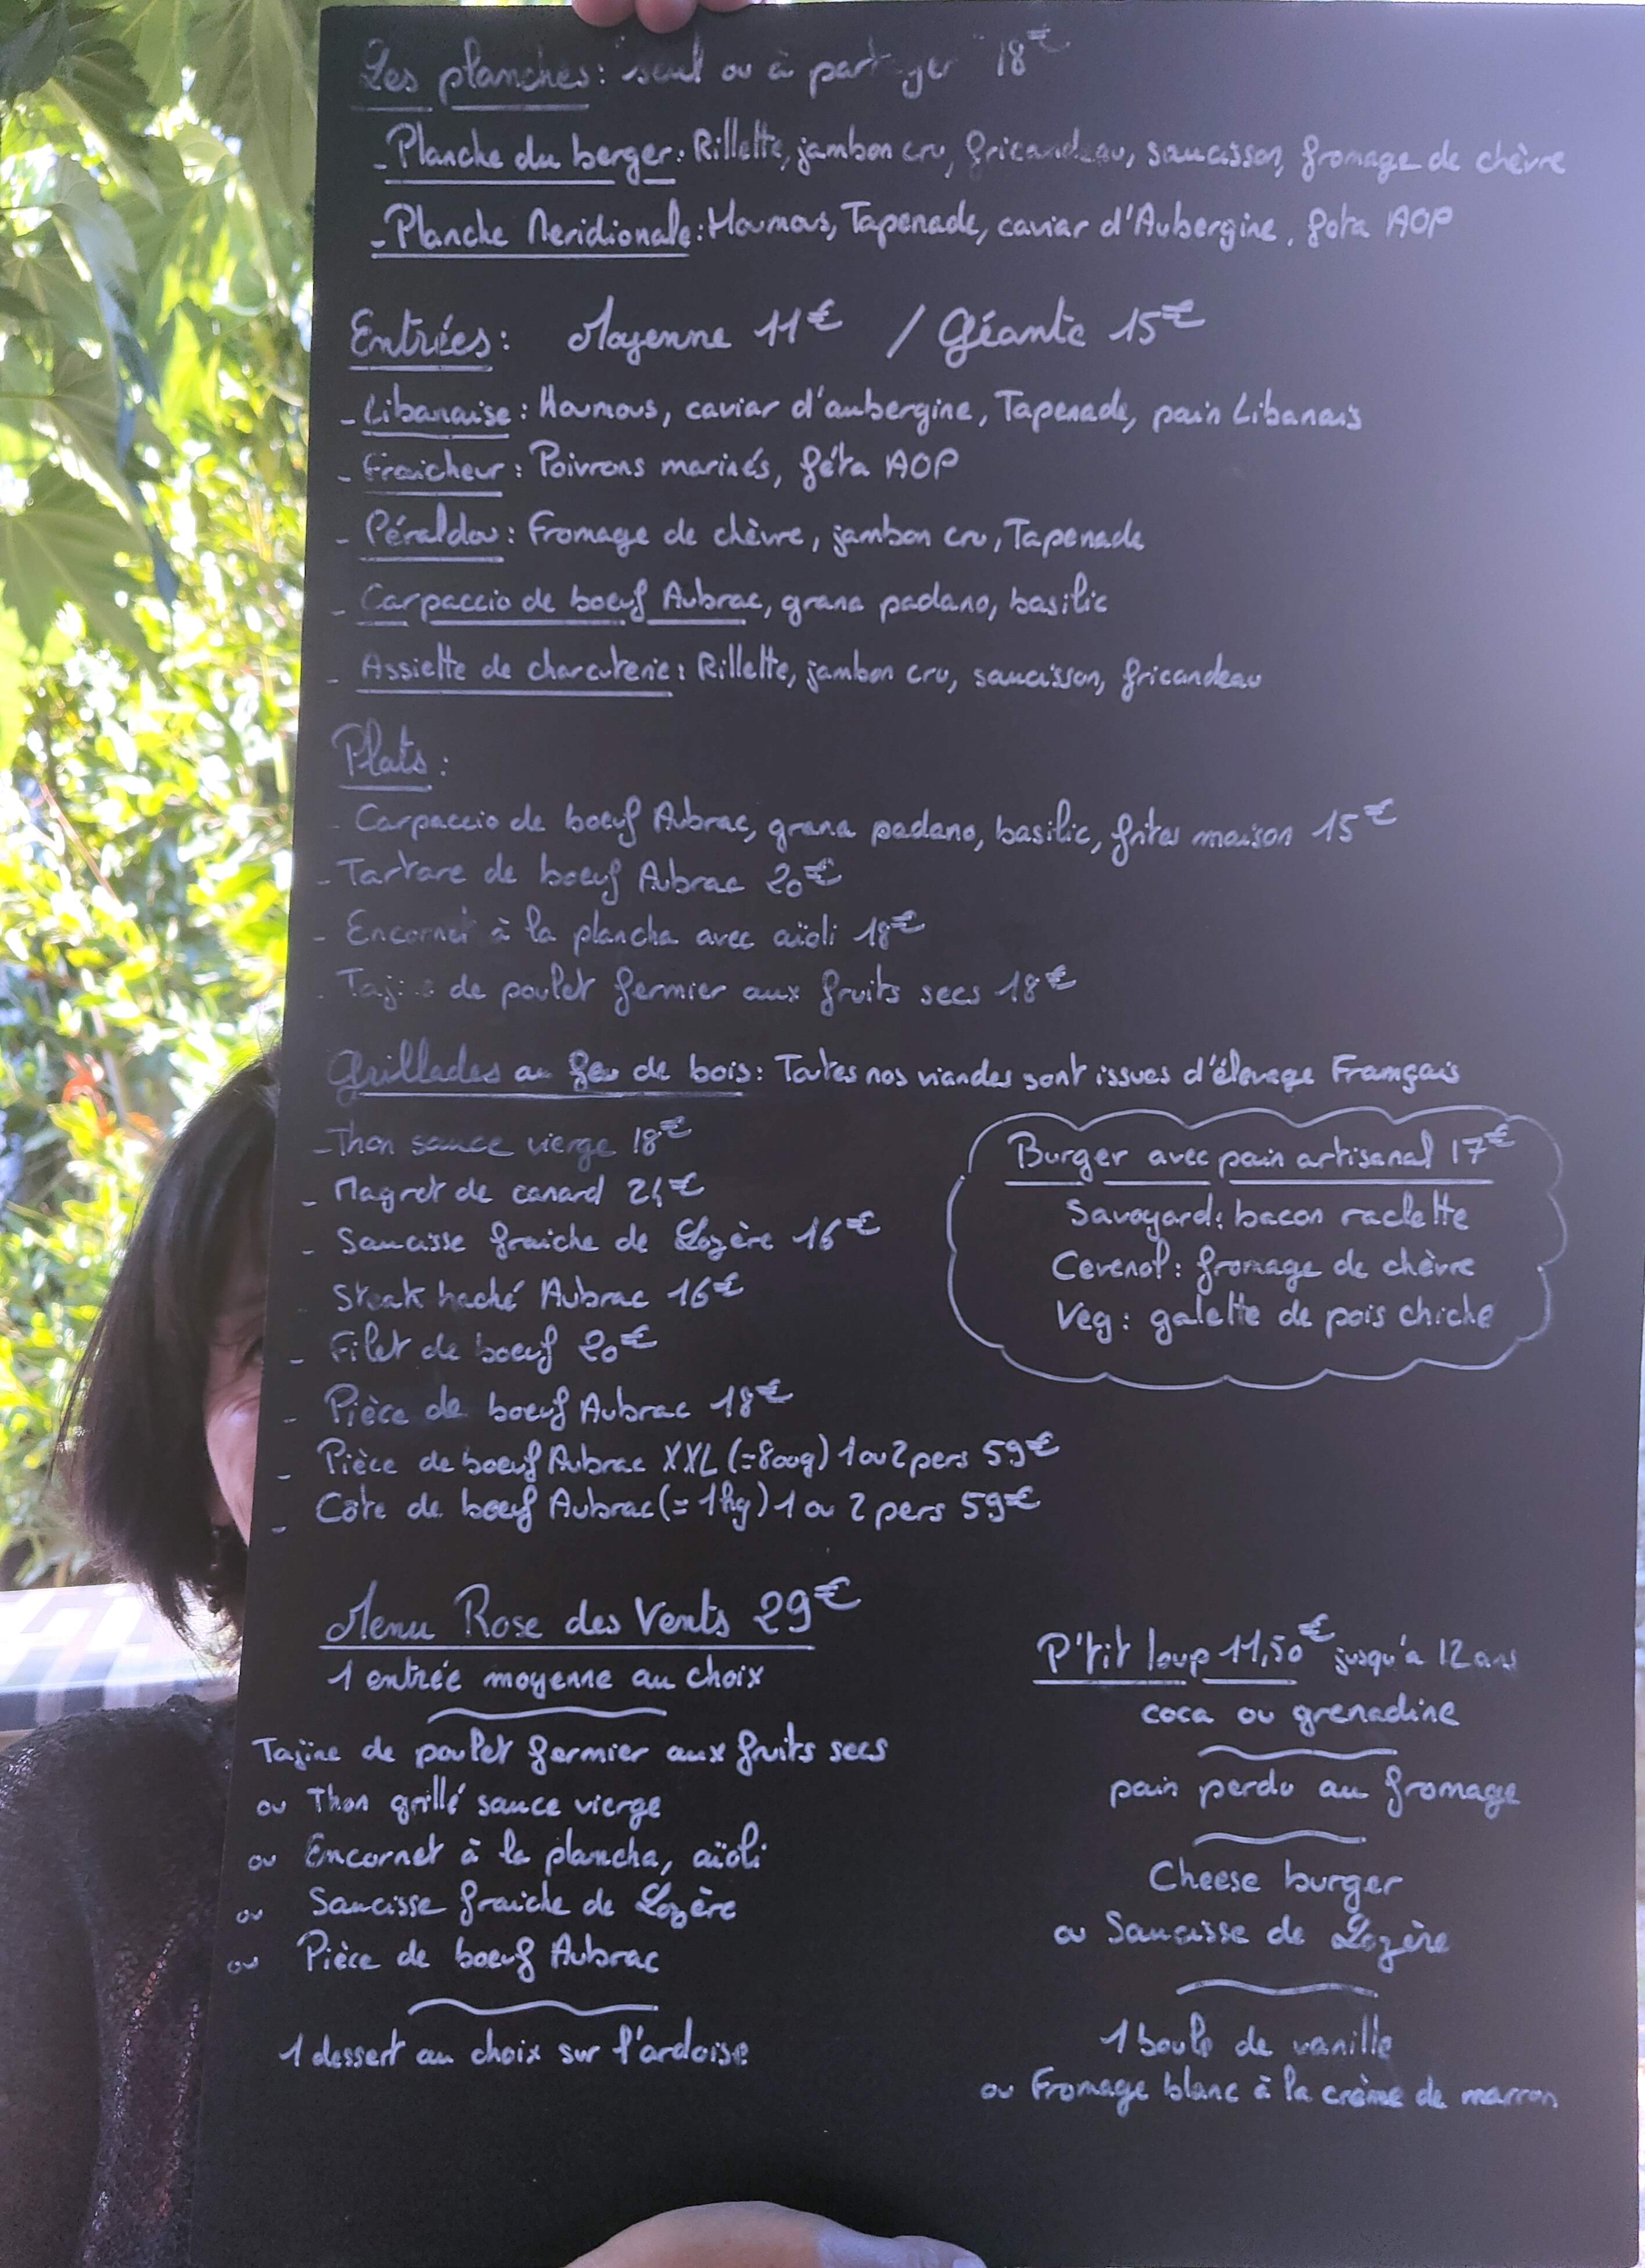 Les planches : seul ou à partager 18€
- Planche du berger : Rillette, jambon cru, fricandeau, saucisson, fromage de chèvre
- Planche Meridionale : Houmous, Tapenade, caviar d'Aubergine, feta AOP
Entrées : Moyenne 11€ / Géante 15€
- Libanaise : Houmous, caviar d'aubergine, Tapenade, pain Libanais
- Fraicheur : Poivrons marinés, féta AOP
- Péraldou : Fromage de chèvre, jambon cru, Tapenade
- Carpaccio de boeuf Aubrac, grana padano, basilic
- Assiette de charcuterie : Rillette, jambon cru, saucisson, fricandeau
Plats :
- Carpaccio de boeuf Aubrac, grana padano, basilic, frites maison 15€
- Tartare de boeuf Aubrac 20€
- Encornet à la plancha avec aïoli 18€
- Tajine de poulet fermier aux fruits secs 18€
Grillades au feu de bois : Toutes nos viandes sont issues d'élevage Framçais
- Thon sauce vierge 18€
- Magret de canard 21€
- Saucisse fraiche de Lozère 16€
- Steak haché Aubrac 16€
- Filet de boeuf 20€
- Pièce de boeuf Aubrac 18€
- Pièce de boeuf Aubrac XXL (=800g) 1 ou 2 pers 59€
- Côte de boeuf Aubrac (= 1kg) 1 ou 2 pers 59€
Burger avec pain artisanal 17€
Savoyard : bacon raclette
Cevenol : fromage de chèvre
Veg : galette de pois chiche
Menu Rose des Vents 29€
1 entrée moyenne au choix
Tajine de poulet fermier aux fruits secs
ou Thon grillé sauce vierge
ou Encornet à la plancha, aïoli
ou Saucisse fraiche de Lozère
ou Pièce de boeuf Aubrac
1 dessert au choix sur l'ardoise
P'tit loup 11,50€ jusqu'a 12 ans
coca ou grenadine
pain perdu au fromage
Cheese burger
ou Saucisse de Lozère
1 boule de vanille
ou Fromage blanc à la crème de marron